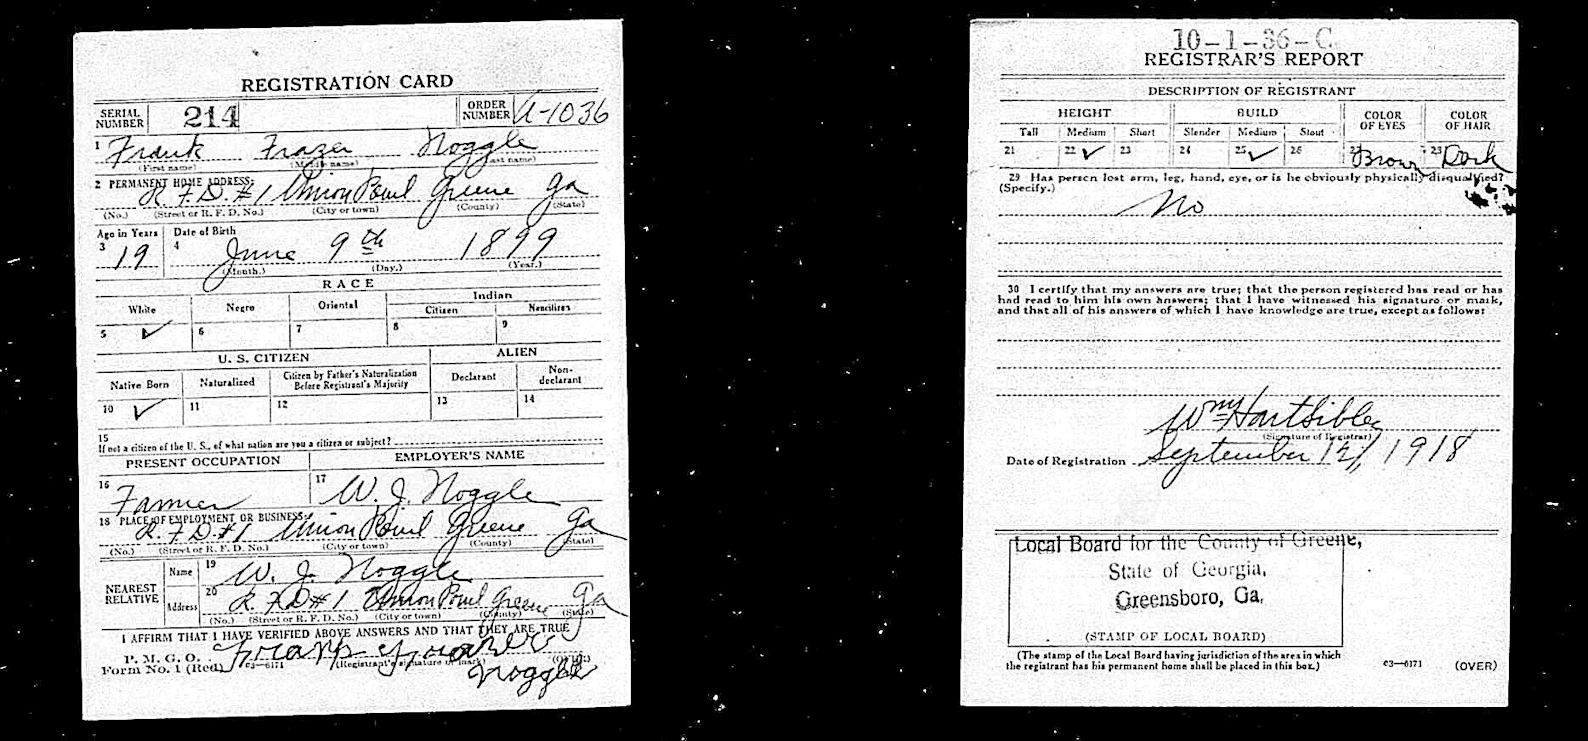 REGISTRATION CARD
SERIAL NUMBER 214 ORDER NUMBER A-1036
1 Frank Frazer Noggle
(First name) (Middle name) (Last name)
2 PERMANENT HOME ADDRESS:
R. F. D. #1 Union Point Greene Ga
(No.) (Street or R. F. D. No.) (City or town) (County) (State)
Age in Years Date of Birth
3 19 4 June 9th 1899
(Month.) (Day.) (Year.)
RACE
White Negro Oriental Indian
Citizen Noncitizen
5 ✓ 6 7 8 9
U. S. CITIZEN ALIEN
Native Born Naturalized Citizen by Father's Naturalization Before Registrant's Majority Declarant Non-declarant
10 ✓ 11 12 13 14
15
If not a citizen of the U. S., of what nation are you a citizen or subject?
PRESENT OCCUPATION EMPLOYER'S NAME
16 Farmer 17 W. J. Noggle
18 PLACE OF EMPLOYMENT OR BUSINESS:
R. F. D. #1 Union Point Greene Ga
(No.) (Street or R. F. D. No.) (City or town) (County) (State)
NEAREST RELATIVE Name 19 W. J. Noggle
Address 20 R. F. D #1 Union Point Greene Ga
(No.) (Street or R. F. D. No.) (City or town) (County) (State)
I AFFIRM THAT I HAVE VERIFIED ABOVE ANSWERS AND THAT THEY ARE TRUE
P. M. G. O.
Form No. 1 (Red) c3—6171 (Registrant's signature or mark) (OVER)
Frank Frazer
Noggle
10-1-36-C
REGISTRAR'S REPORT
DESCRIPTION OF REGISTRANT
HEIGHT BUILD COLOR OF EYES COLOR OF HAIR
Tall Medium Short Slender Medium Stout
21 22 ✓ 23 24 25 ✓ 26 27 Brown 28 Dark
29 Has person lost arm, leg, hand, eye, or is he obviously physically disqualified?
(Specify.)
No
30 I certify that my answers are true; that the person registered has read or has
had read to him his own answers; that I have witnessed his signature or mark,
and that all of his answers of which I have knowledge are true, except as follows:
Wm Hart Sibley
(Signature of Registrar)
Date of Registration September 12, 1918
Local Board for the County of Greene,
State of Georgia,
Greensboro, Ga.
(STAMP OF LOCAL BOARD)
(The stamp of the Local Board having jurisdiction of the area in which
the registrant has his permanent home shall be placed in this box.)
c3—6171 (OVER)